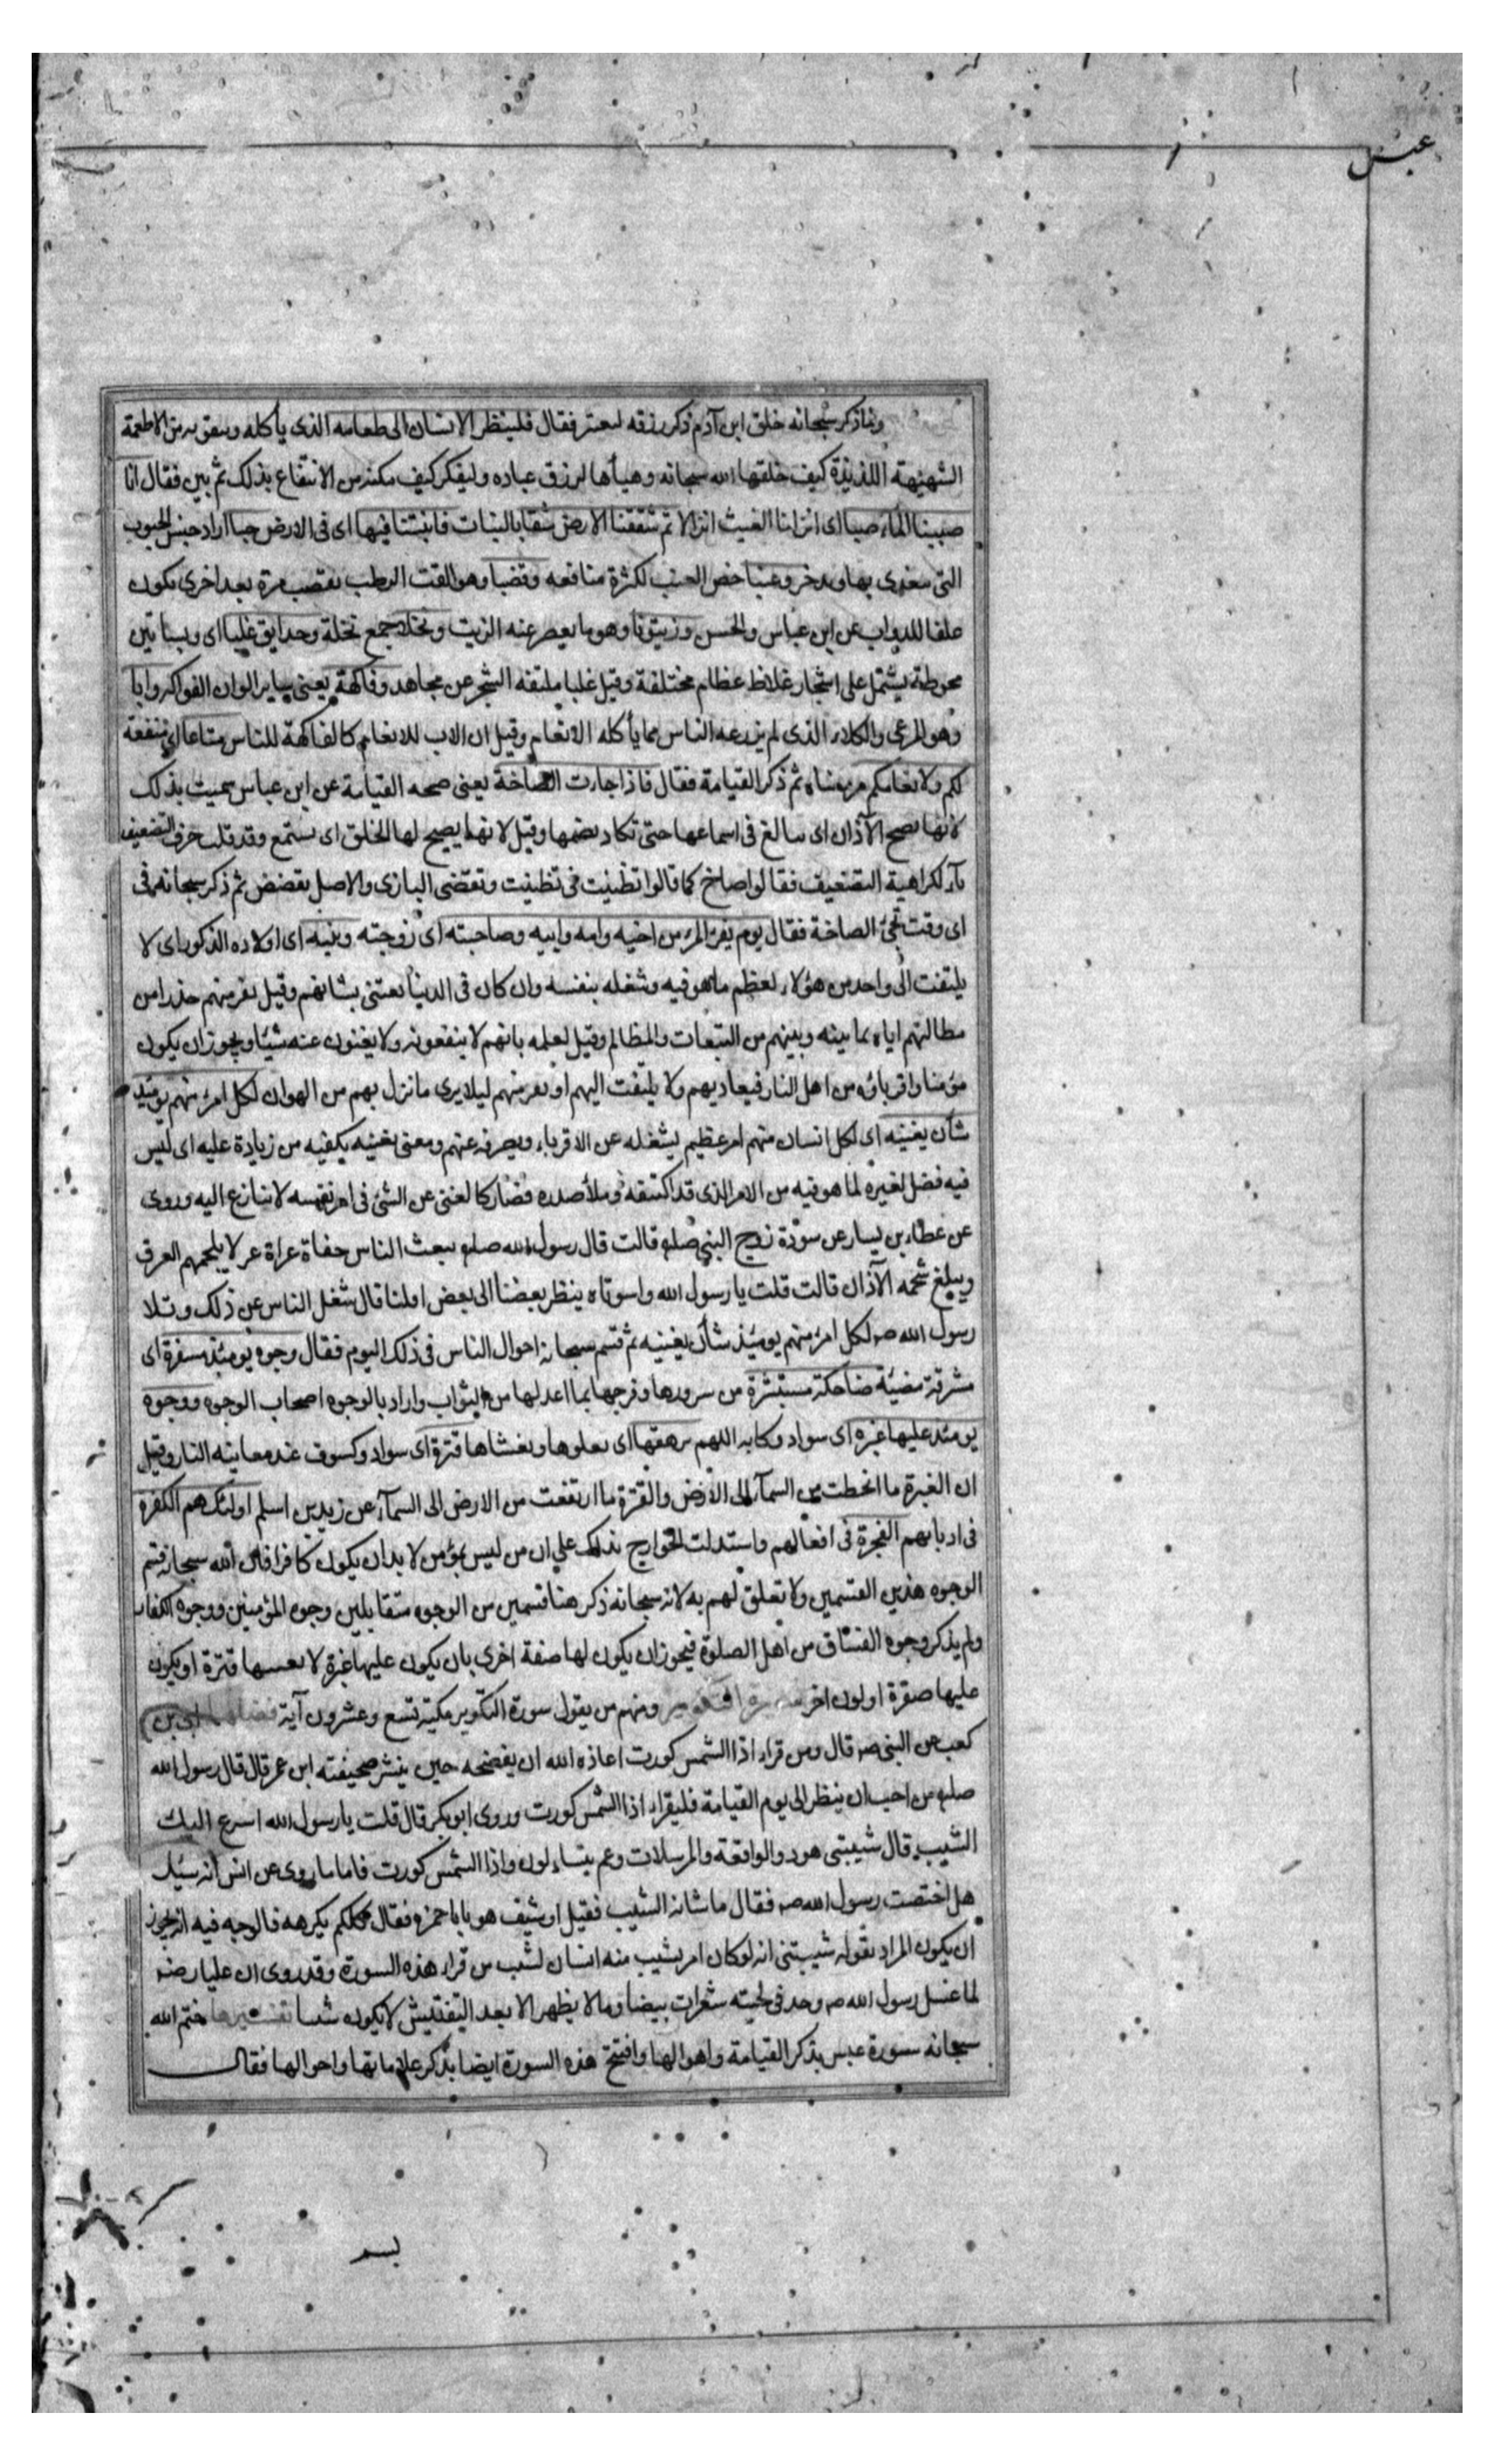 عبس
ولما ذكر سبحانه خلق ابن آدم ذكر رزقه ليعتبر فقال فلينظر الانسان الى طعامه الذى يأكله ويتقوته من الاطعمة
الشهيهة اللذيذة كيف خلقها الله سبحانه وهيأها لرزق عباده وليفكر كيف مكنه من الانتفاع بذلك ثم بين فقال انا
صببنا الماء صبا اى انزلنا الغيث انزالا ثم شققنا الارض شقا بالنبات فانبتنا فيها اى فى الارض حبا اراد جنس الحبوب
التى يتغدى بها ويدخر وعنبا خص العنب لكثرة منافعه وقضبا وهو القت الرطب يقصب مرة بعد اخرى يكون
علفا للدواب عن ابن عباس والحسن وزيتونا وهو ما يعصر عنه الزيت ونخلا جمع نخلة وحدايق غلبا اى وبساتين
محوطة يشتمل على اشجار غلاظ عظام مختلفة وقيل غلبا ملتفه الشجر عن مجاهد وفاكهة يعنى ساير الوان الفواكه وابا
وهو المرعى والكلاء الذى لم يزرعه الناس مما يأكله الانعام وقيل ان الاب للانعام كالفاكهة للناس متاعا اى منفعة
لكم ولانعامكم مر معناه ثم ذكر القيامة فقال فاذا جاءت الصاخة يعنى صيحه القيامة عن ابن عباس سميت بذلك
لانها تصخ الآذان اى يبالغ فى اسماعها حتى تكاد تصمها وقيل لانها يصيخ لها الخلق اى يستمع وقد قلب حرف التضعيف
ياء لكراهية التضعيف فقالوا صاخ كما قالوا تظنيت فى تظننت وتقضى البازى والاصل تقضض ثم ذكر سبحانه فى
اى وقت تجئ الصاخة فقال يوم يفر المرء من اخيه وامه وابيه وصاحبته اى زوجته وبنيه اى اولاده الذكور اى لا
يلتفت الى واحد من هؤلاء لعظم ما هو فيه وشغله بنفسه وان كان فى الدنيا يعتنى بشانهم وقيل يفر منهم حذرا من
مطالبتهم اياه بما بينه وبينهم من التبعات والمظالم وقيل لعلمه بانهم لا ينفعونه ولا يغنون عنه شيئا ويجوز ان يكون
مؤمنا واقرباؤه من اهل النار فيعاديهم ولا يلتفت اليهم او يفر منهم ليلا يرى ما نزل بهم من الهوان لكل امرئ منهم يومئذ
شأن يغنيه اى لكل انسان منهم امر عظيم يشغله عن الاقرباء ويصرفه عنهم ومعنى يغنيه يكفيه من زيادة عليه اى ليس
فيه فضل لغيره لما هو فيه من الامر الذى قد اكتنفه وملأ صدره فصار كالغنى عن الشئ فى امر نفسه لا تنازع اليه وروى
عن عطاء بن يسار عن سودة زوج النبي صلعم قالت قال رسول الله صلعم يبعث الناس حفاة عراة عرلا يلجمهم العرق
ويبلغ شحمه الآذان قالت قلت يا رسول الله واسوتاه ينظر بعضنا الى بعض اولنا قال شغل الناس عن ذلك وتلا
رسول الله صه لكل امرئ منهم يومئذ شأن يغنيه ثم قسم سبحانه احوال الناس فى ذلك اليوم فقال وجوه يومئذ مسفرة اى
مشرقة مضيئة ضاحكة مستبشرة من سرورها وفرجها بما اعد لها من الثواب واراد بالوجوه اصحاب الوجوه ووجوه
يومئذ عليها غبره اى سواد وكابه اللهم ترهقها اى يعلوها ويغشاها قترة اى سواد وكسوف عند معاينه النار وقيل
ان الغبرة ما انحطت من السماء الى الارض والقترة ما ارتفعت من الارض الى السماء عن زيد بن اسلم اولئك هم الكفرة
فى اديانهم الفجرة فى افعالهم واستدلت الخوارج بذلك على ان من ليس بمؤمن لا بد ان يكون كافرا فان الله سبحانه قسم
الوجوه هذين القسمين ولا تعلق لهم به لانه سبحانه ذكر هنا قسمين من الوجوه متقابلين وجوه المؤمنين ووجوه الكفار
ولم يذكر وجوه الفساق من اهل الصلوة فيجوز ان يكون لها صفة اخرى بان يكون عليها غبرة لا يغسها قترة او يكون
عليها صفرة او لون اخر ومنهم من يقول سورة التكوير مكية تسع وعشرون آية فضلها ابى بن
كعب عن النبى صه قال ومن قراء اذا الشمس كورت اعاذه الله ان يفضحه حين ينشر صحيفته ابن عمر قال قال رسول الله
صلعم من احب ان ينظر الى يوم القيامة فليقراء اذا الشمس كورت وروى ابو بكر قال قلت يا رسول الله اسرع اليك
الشيب قال شيبتى هود والواقعة والمرسلات وعم يتساءلون واذا الشمس كورت فاما ما روى عن انس انه سئل
هل اختضب رسول الله صه فقال ما شانه الشيب فقيل او شيف هو يا با حمزه فقال كلكم يكرهه فالوجه فيه انه يجوز
ان يكون المراد بقوله شيبتنى انه لو كان امر يشيب منه انسان لشب من قراء هذه السورة وقد روى ان عليا رضه
لما غسل رسول الله صه وجد فى لحيته شعرات بيضا وما لا يظهر الا بعد التفتيش لا يكون شيبا تفسيرها ختم الله
سبحانه سورة عبس بذكر القيامة واهوالها وافتتح هذه السورة ايضا بذكر علاماتها واحوالها فقال